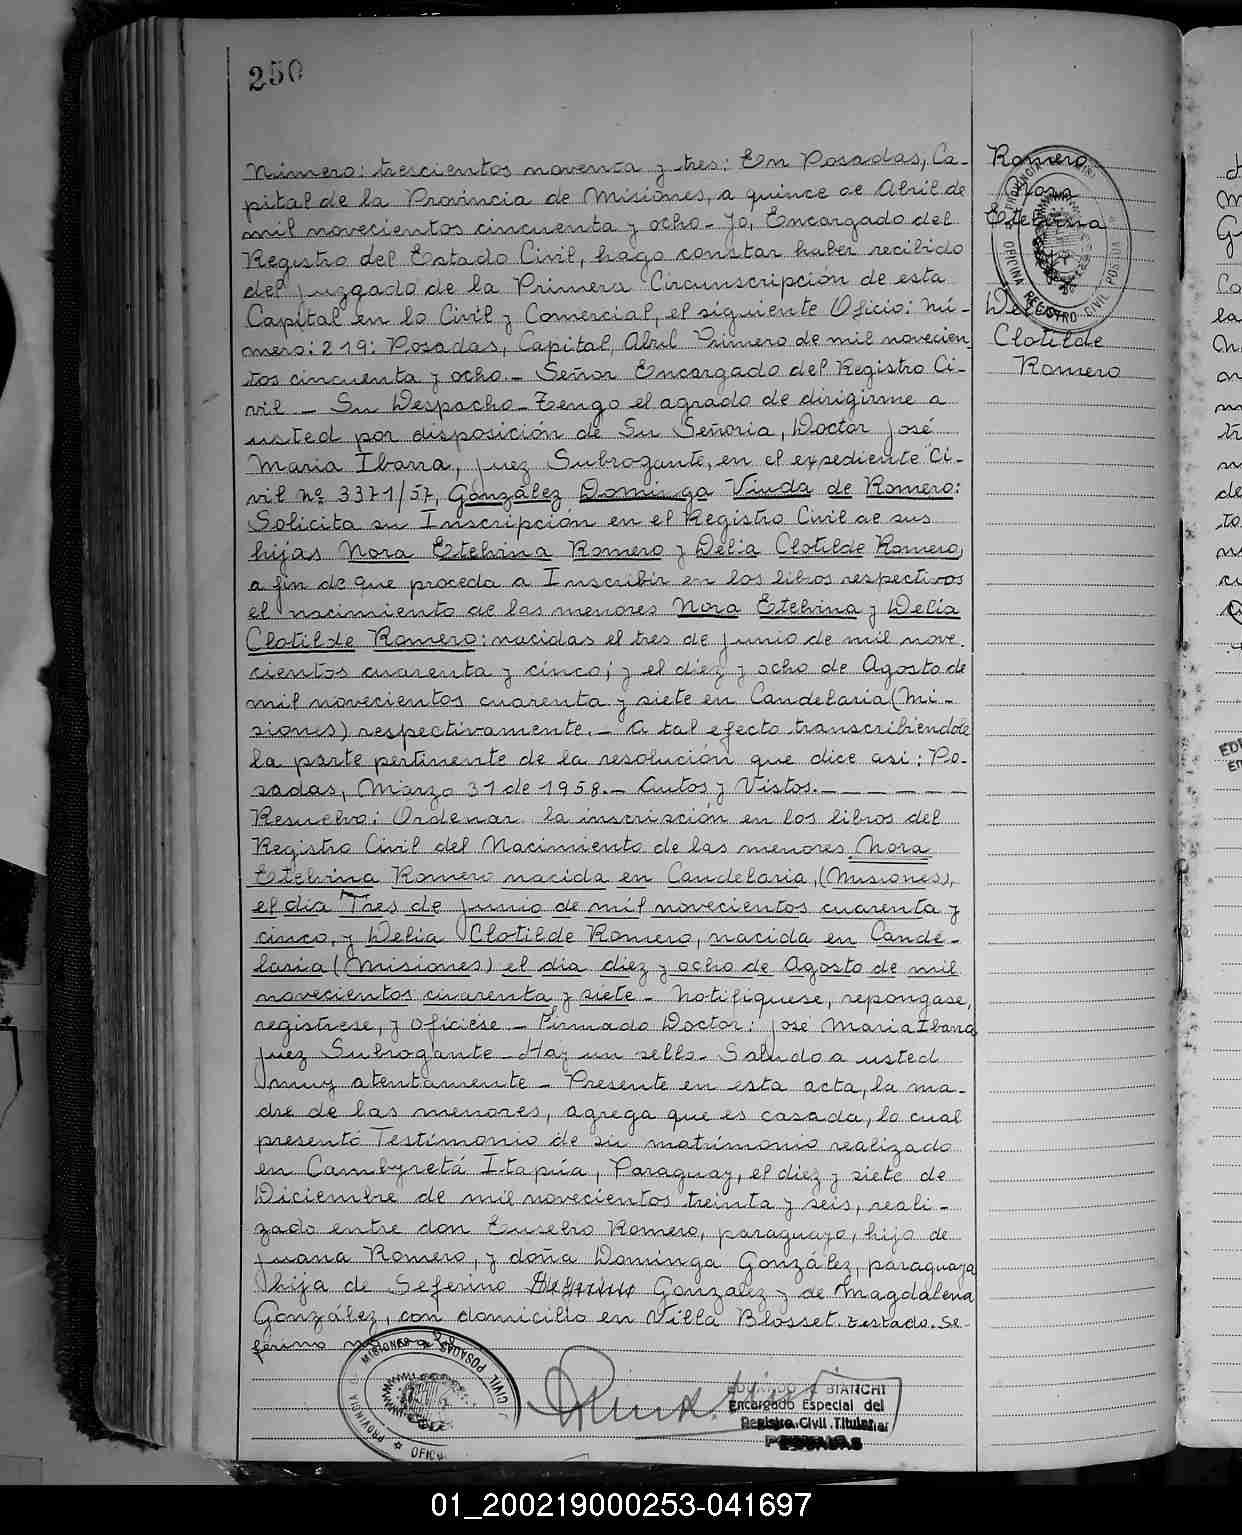 250
Número: trescientos noventa y tres: En Posadas, Ca-
pital de la Provincia de Misiones, a quince de Abril de
mil novecientos cincuenta y ocho - Yo, Encargado del
Registro del Estado Civil, hago constar haber recibido
del Juzgado de la Primera Circunscripción de esta
Capital en lo Civil y Comercial, el siguiente Oficio: Nú-
mero: 219: Posadas, Capital, Abril Primero de mil novecien
tos cincuenta y ocho. - Señor Encargado del Registro Ci-
vil - Su Despacho - Tengo el agrado de dirigirme a
usted por disposición de Su Señoria, Doctor José
Maria Ibarra, Juez Subrogante, en el expediente "Ci-
vil Nº 3371/57, González Dominga Viuda de Romero:
Solicita su Inscripción en el Registro Civil de sus
hijas Nora Etelvina Romero y Delia Clotilde Romero,
a fin de que proceda a Inscribir en los libros respectivos
el nacimiento de las menores Nora Etelvina y Delia
Clotilde Romero: nacidas el tres de Junio de mil nove
cientos cuarenta y cinco; y el diez y ocho de Agosto de
mil novecientos cuarenta y siete en Candelaria (Mi-
siones) respectivamente. - A tal efecto transcribiéndole
la parte pertinente de la resolución que dice asi: Po-
sadas, Marzo 31 de 1958. - Autos y Vistos. - - - - - -
Resuelvo: Ordenar la inscripción en los libros del
Registro Civil del Nacimiento de las menores Nora
Etelvina Romero nacida en Candelaria, (Misiones),
el día Tres de Junio de mil novecientos cuarenta y
cinco, y Delia Clotilde Romero, nacida en Cande-
laria (Misiones) el día diez y ocho de Agosto de mil
novecientos cuarenta y siete - Notifiquese, repongase,
registrese, y oficiése - Firmado Doctor: José Maria Ibarra
Juez Subrogante - Hay un sello - Saludo a usted
muy atentamente - Presente en esta acta, la ma-
dre de las menores, agrega que es casada, lo cual
presentó Testimonio de su matrimonio realizado
en Cambyretá Itapúa, Paraguay, el diez y siete de
Diciembre de mil novecientos treinta y seis, reali-
zado entre don Eusebio Romero, paraguayo, hijo de
Juana Romero, y doña Dominga González, paraguaya
hija de Seferino González y de Magdalena
González, con domicilio en Villa Blosset. Testado. Se-
ferino no
Romero
Nora
Etelvina
y
Delia
Clotilde
Romero
PROVINCIA MISI
OFICINA REGISTRO CIVIL POSADA
PROVINCIA D MISIONES
OFIC CIVIL POSADAS
EDUARDO BIANCHI
Encargado Especial del
Registro Civil Titular
POSADAS
01_200219000253-041697